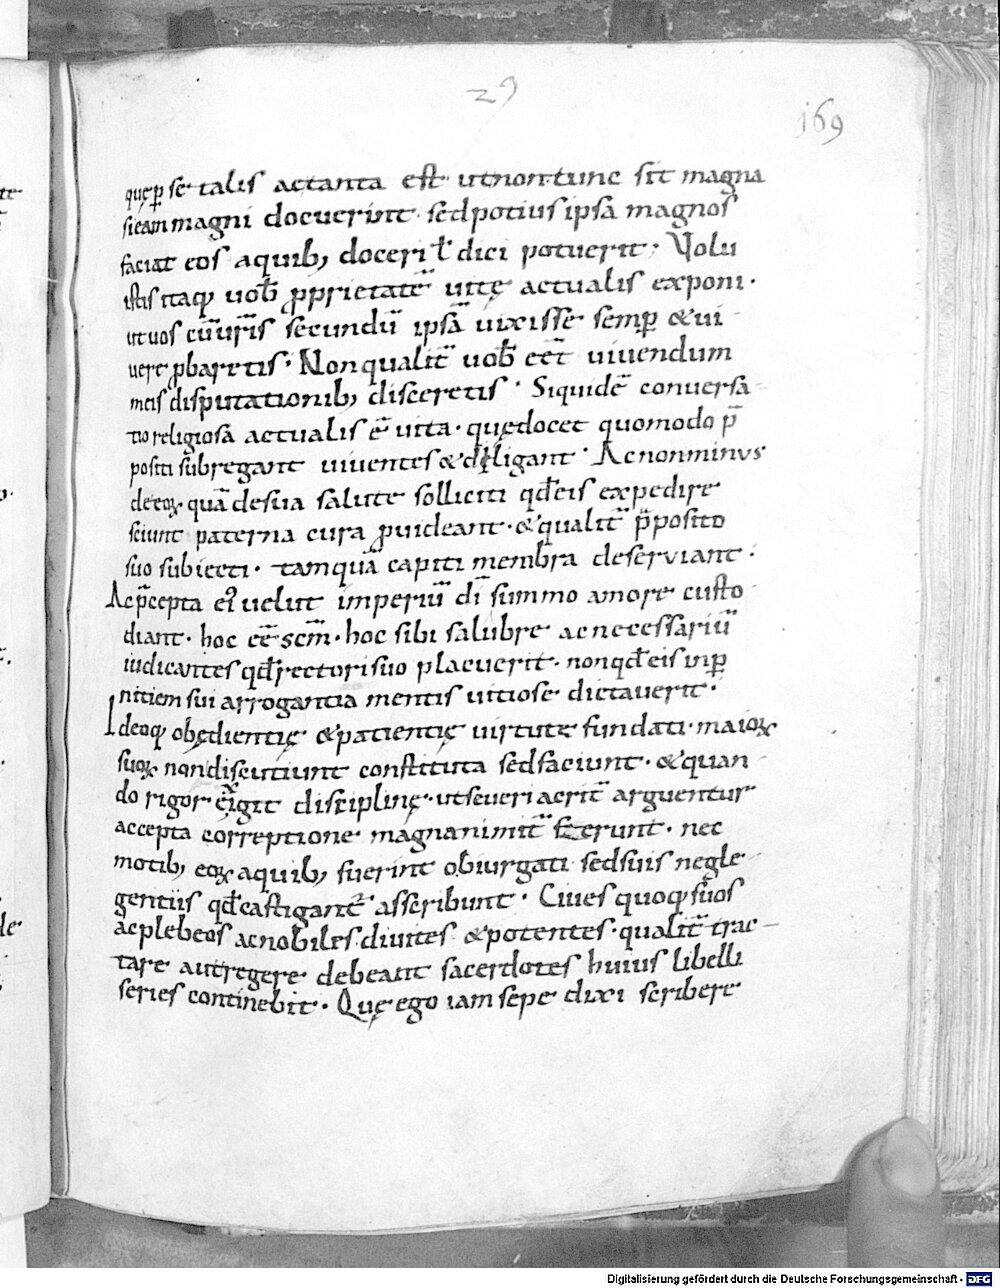 29
169
quęꝑ se talis ac tanta est ut non tunc sit magna
si eam magni docuerint sed potius ipsa magnos
faciat eos a quib; doceri ł dici potuerit; Volu
istis itaq; uob̄ ꝓprietatē uitę actualis exponi.
ut uos cū ur̄is secundū ipsā uixisse semꝑ & ui
uere ꝓbaretis. Non qualit̄ uob̄ eēt uiuendum
meis disputationib; disceretis. Siquidē conuersa-
tio religiosa actualis ē uita. quę docet quomodo p̄
positi subregant uiuentes & diligant. Ac non minus
de eoꝝ quā de sua salute solliciti qđ eis expedire
sciunt paterna cura ꝓuideant. & qualit̄ p̄posito
suo subiecti. tamquā capiti membra deserviant.
Ac p̄cepta ei᷒ uelut imperiū dī summo amore custo
diant. hoc eē scm̄. hoc sibi salubre ac necessariū
iudicantes qđ rectori suo placuerit. non qđ eis inꝑ
nitiem sui arrogantia mentis uitiose dictauerit.
Ideoq; obędientię & patientię uirtute fundati. maioꝝ
suoꝝ non discutiunt constituta sed faciunt. & quan
do rigor exigit disciplinę. ut seueri acrit̄ arguentur
accepta correptione magnanimit̄ ferunt. nec
motib; eoꝝ a quib; fuerint obiurgati sed suis negle
gentiis qđ castigant᷑ asscribunt. Ciues quoq; suos
ac plebeos ac nobiles. diuites & potentes. qualit̄ trac-
tare aut regere debeant sacerdotes huius libelli
series continebit. Quę ego iam sepe dixi scribere
Digitalisierung gefördert durch die Deutsche Forschungsgemeinschaft - DFG